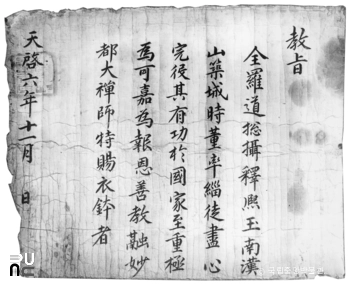 教旨
全羅道摠攝釋熈玉南漢
山築城時董率緇徒盡心
完役其有功於國家至重極
爲可嘉爲報恩善教融妙
都大禪師特賜衣鉢者
天啓六年十一月 日